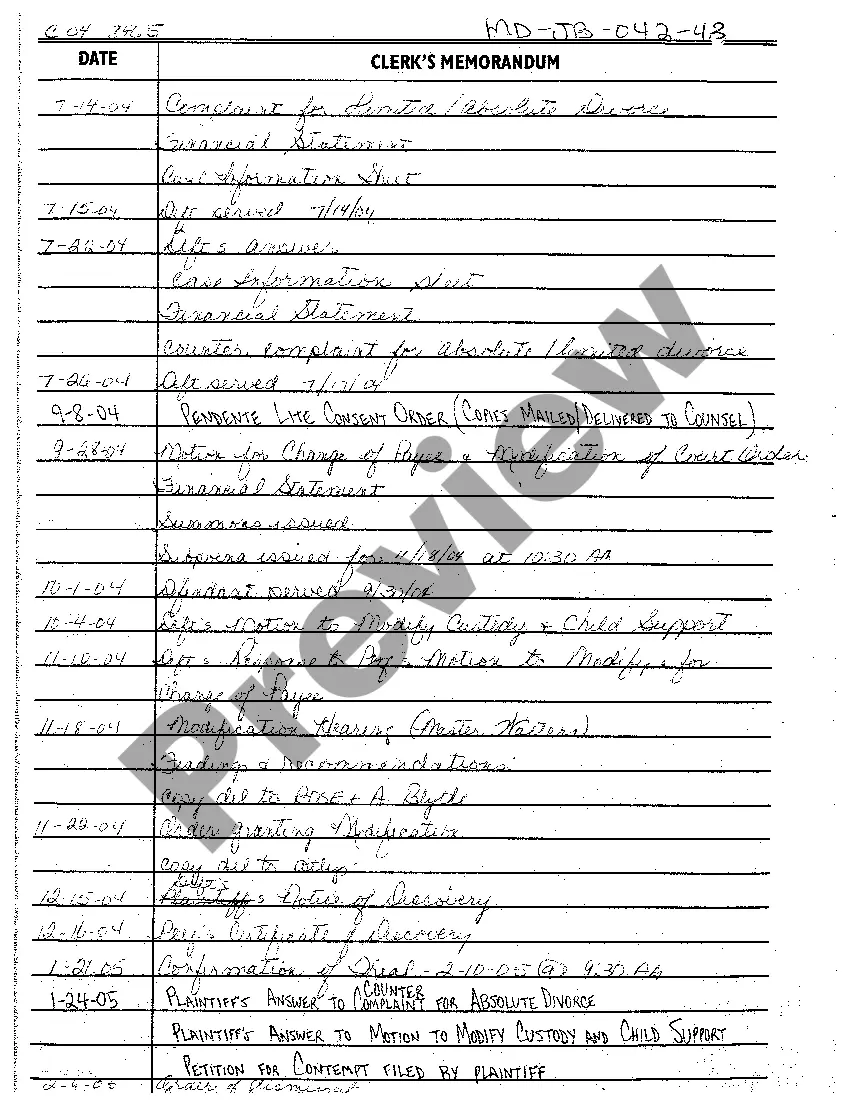 C 04
MD-JB-042-43
DATE CLERK'S MEMORANDUM
7-14-04 Complaint for Limited / Absolute Divorce
Financial Statement
Case Information Sheet
7-15-04 Deft served 7/14/04
Deft's answer
Case Information Sheet
Financial Statement
Counter complaint for absolute / limited divorce
7-26-04 served
9-8-04 PENDENTE LITE CONSENT ORDER (COPIES MAILED/DELIVERED TO COUNSEL)
9-28-04 Motion for Change of Payee & Modification of Court Order
Financial Statement
Summons issued
Subpoena issued for 11/18/04 at 10:30 AM
10-1-04 Defendant served 9/30/04
10-4-04 Deft's Motion to Modify Custody & Child Support
11-10-04 Deft's Response to Motion to Modify & for
Change of Payee
11-18-04 Modification Hearing (Master
Findings & Recommendations
copy del to & A. Blythe
11-22-04 Order granting Modification
copy del to
12-15-04 Notice of Discovery
12-16-04 Certificate of Discovery
1-21-05 Confirmation of Trial - 2-10-05 @ 9:30 AM
1-24-05 PLAINTIFF'S ANSWER TO COUNTER COMPLAINT FOR ABSOLUTE DIVORCE
PLAINTIFF'S ANSWER TO MOTION TO MODIFY CUSTODY AND CHILD SUPPORT
PETITION FOR CONTEMPT FILED BY PLAINTIFF
Order of Dismissal
Preview